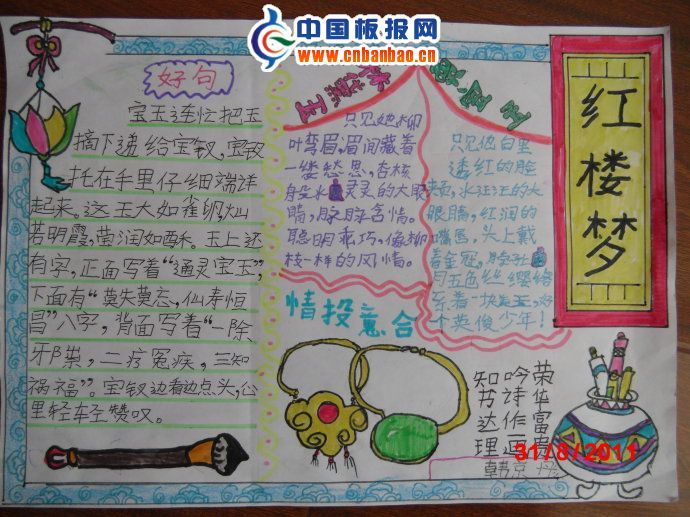 中国板报网
www.cnbanbao.cn
好句
宝玉连忙把玉
摘下递给宝钗,宝钗
托在手里仔细端详
起来。这玉大如雀卵,灿
若明霞,莹润如酥。玉上还
有字,正面写着“通灵宝玉”,
下面有“莫失莫忘,仙寿恒
昌”八字,背面写着“一除
邪祟,二疗冤疾,三知
祸福”。宝钗边看边点头,心
里轻轻赞叹。
林黛玉
只见她柳
叶弯眉,眉间藏着
一缕愁思,杏核
般水灵灵的大眼
睛,脉脉含情。
聪明乖巧,像柳
枝一样的风情。
贾宝玉
只见他白里
透红的脸
水汪汪的大
眼睛,红润的
嘴唇,头上戴
着金冠,
月五色丝缨络
系着一块美玉,好
个英俊少年!
情投意合
知书达理
吟诗作画
荣华富贵
红楼梦
31/8/2011